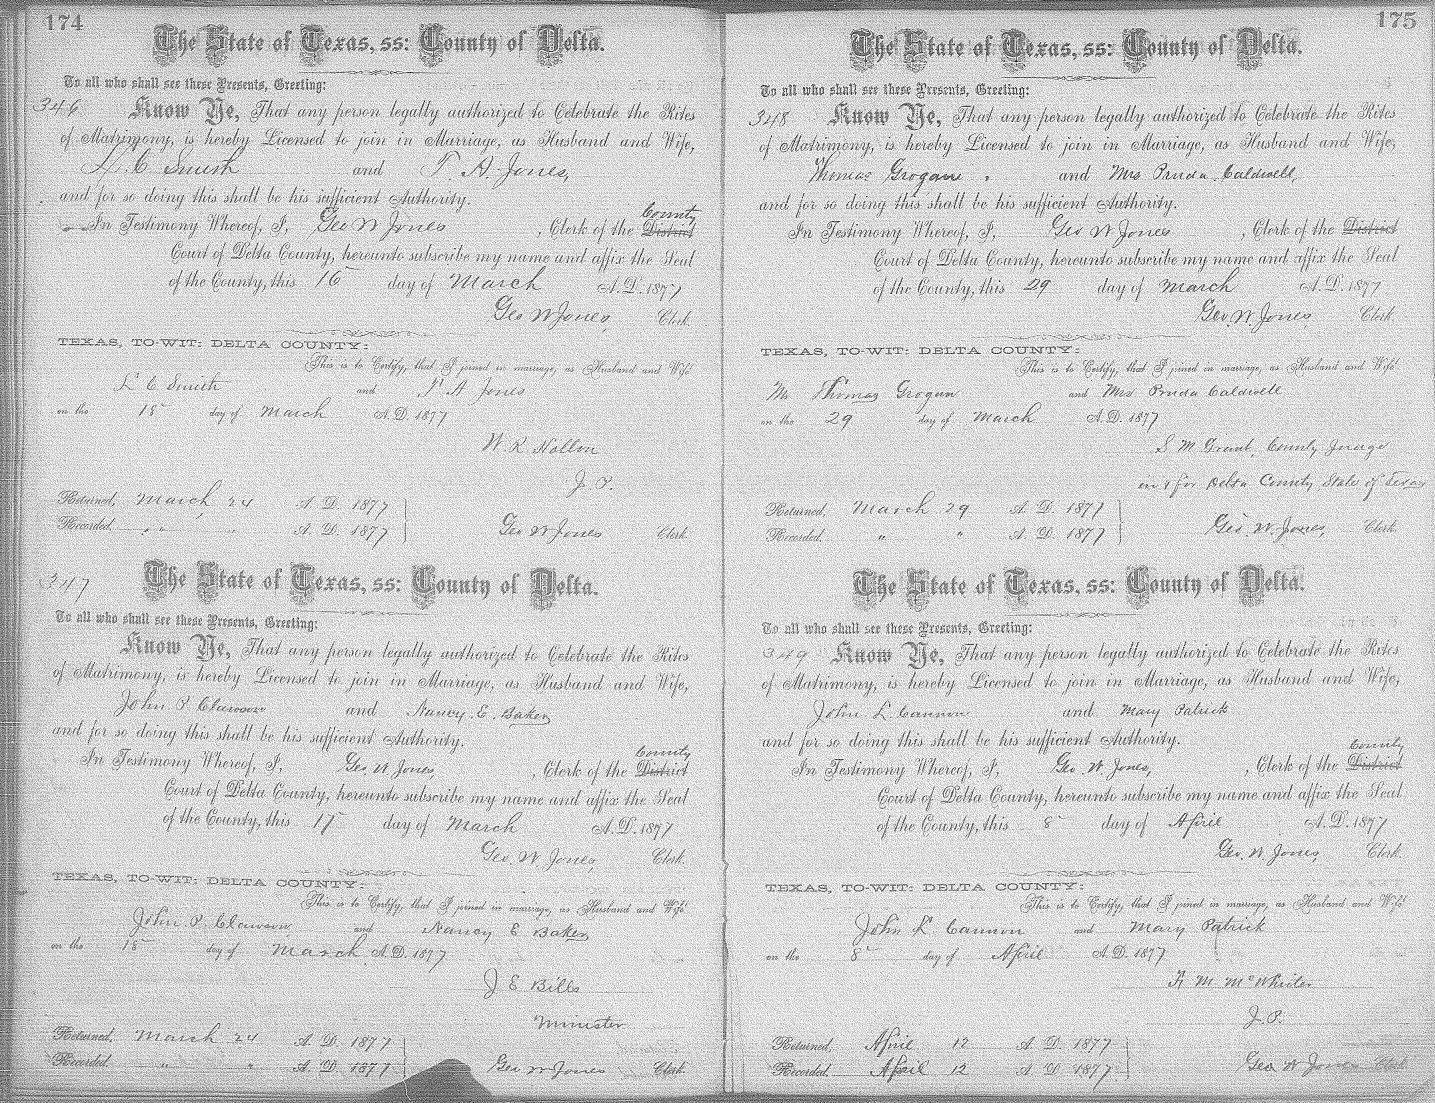 174
The State of Texas, ss: County of Delta.
To all who shall see these Presents, Greeting:
346 Know Ye, That any person legally authorized to Celebrate the Rites
of Matrimony, is hereby Licensed to join in Marriage, as Husband and Wife,
L. C Smith and F. A. Jones,
and for so doing this shall be his sufficient Authority.
County
In Testimony Whereof, I, Geo W Jones, Clerk of the District
Court of Delta County, hereunto subscribe my name and affix the Seal
of the County, this 15 day of March A.D. 1877
Geo W Jones, Clerk.
TEXAS, TO-WIT: DELTA COUNTY:
This is to Certify, that I joined in marriage, as Husband and Wife
L C Smith and F A Jones
on the 18 day of March A.D. 1877
W. R.
J. P.
Returned, March 24 A. D. 1877
Recorded, " " A. D. 1877 Geo W Jones Clerk
347 The State of Texas, ss: County of Delta.
To all who shall see these Presents, Greeting:
Know Ye, That any person legally authorized to Celebrate the Rites
of Matrimony, is hereby Licensed to join in Marriage, as Husband and Wife,
John P Clawson and Nancy. E. Baker
and for so doing this shall be his sufficient Authority.
County
In Testimony Whereof, I, Geo W Jones, , Clerk of the District
Court of Delta County, hereunto subscribe my name and affix the Seal
of the County, this 17 day of March A.D. 1877
Geo. W Jones, Clerk.
TEXAS, TO-WIT: DELTA COUNTY:
This is to Certify, that I joined in marriage, as Husband and Wife
John P. Clawson and Nancy E Baker
on the 18 day of March A.D. 1877
J E Bills
Minister
Returned, March 24 A. D. 1877
Recorded, " " A. D. 1877 Geo W Jones Clerk
175
The State of Texas, ss: County of Delta.
To all who shall see these Presents, Greeting:
348 Know Ye, That any person legally authorized to Celebrate the Rites
of Matrimony, is hereby Licensed to join in Marriage, as Husband and Wife,
Thomas Grogan and Mrs Pruda. Caldwell,
and for so doing this shall be his sufficient Authority.
In Testimony Whereof, I, Geo W Jones , Clerk of the District
Court of Delta County, hereunto subscribe my name and affix the Seal
of the County, this 29 day of March A.D. 1877
Geo. W. Jones Clerk.
TEXAS, TO-WIT: DELTA COUNTY:
This is to Certify, that I joined in marriage, as Husband and Wife
Mr Thomas Grogan and Mrs Pruda Caldwell
on the 29 day of March A.D. 1877
S M Grant, County Judge
in & for Delta County State of Texas
Returned, March 29 A. D. 1877
Recorded, " " A. D. 1877 Geo. W. Jones, Clerk
The State of Texas, ss: County of Delta.
To all who shall see these Presents, Greeting:
349 Know Ye, That any person legally authorized to Celebrate the Rites
of Matrimony, is hereby Licensed to join in Marriage, as Husband and Wife,
John L Cannon and Mary Patrick
and for so doing this shall be his sufficient Authority.
County
In Testimony Whereof, I, Geo. W. Jones, , Clerk of the District
Court of Delta County, hereunto subscribe my name and affix the Seal
of the County, this 8 day of April A.D. 1877
Geo. W Jones Clerk.
TEXAS, TO-WIT: DELTA COUNTY:
This is to Certify, that I joined in marriage, as Husband and Wife
John L Cannon and Mary Patrick
on the 8 day of April A.D. 1877
M McWhirter
J. P.
Returned, April 12 A. D. 1877
Recorded, April 12 A. D. 1877 Geo W Jones Clerk